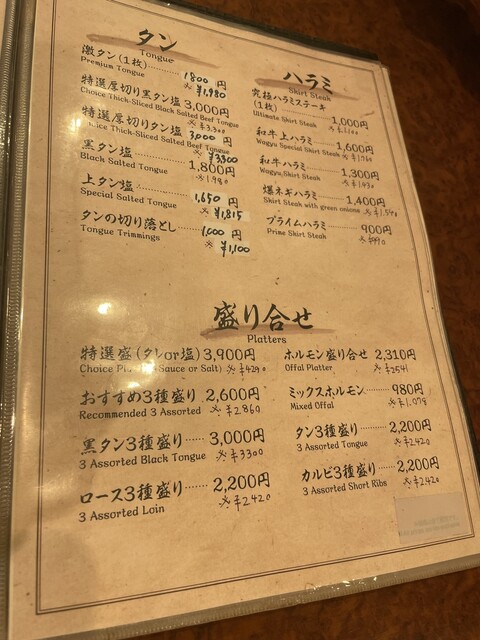 タン
Tongue
激タン(1枚)……… 1800円
Premium Tongue ※ ¥1,980
特選厚切り黒タン塩 3,000円
Choice Thick-Sliced Black Salted Beef Tongue
※ ¥3,300
特選厚切りタン塩 3,000円
Choice Thick-Sliced Salted Beef Tongue
※ ¥3300
黒タン塩……… 1,800円
Black Salted Tongue ※ 1,980
上タン塩……… 1,650円
Special Salted Tongue ※ ¥1,815
タンの切り落とし 1,000円
Tongue Trimmings ※ ¥1,100
ハラミ
Skirt Steak
究極ハラミステーキ
(1枚)……… 1,000円
Ultimate Skirt Steak ※ ¥1,100
和牛上ハラミ…… 1,600円
Wagyu Special Skirt Steak ※ ¥1,760
和牛ハラミ……… 1,300円
Wagyu Skirt Steak ※ ¥1,430
爆ネギハラミ…… 1,400円
Skirt Steak with green onions ※ ¥1,540
プライムハラミ…… 900円
Prime Skirt Steak ※ ¥990
盛り合せ
Platters
特選盛(タレor塩) 3,900円
Choice (Sauce or Salt) ※ ¥4290
おすすめ3種盛り 2,600円
Recommended 3 Assorted ※ ¥2860
黒タン3種盛り…… 3,000円
3 Assorted Black Tongue ※ ¥3300
ロース3種盛り…… 2,200円
3 Assorted Loin ※ ¥2420
ホルモン盛り合せ 2,310円
Offal Platter ※ ¥2541
ミックスホルモン…… 980円
Mixed Offal ※ ¥1,078
タン3種盛り……… 2,200円
3 Assorted Tongue ※ ¥2420
カルビ3種盛り…… 2,200円
3 Assorted Short Ribs ※ ¥2420